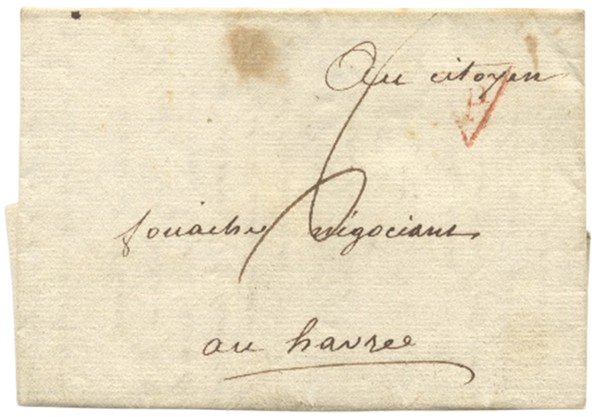 Au citoyen
P
fouache négociant
au havree